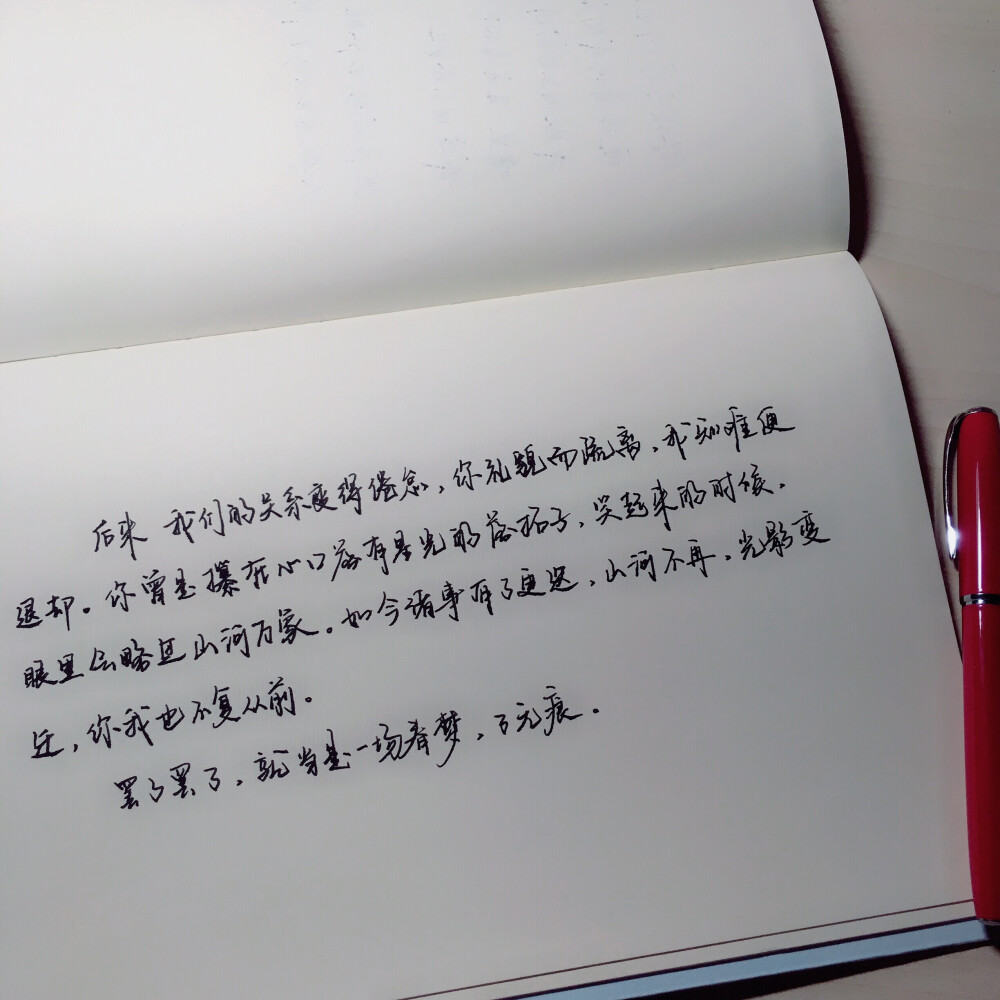 后来 我们的关系变得倦怠，你礼貌而疏离，我知难便
退却。你曾是攥在心口落有星光的落拓子，笑起来的时候，
眼里会略过山河万象。如今诸事有了更迭，山河不再，光影变
迁，你我也不复从前。
罢了罢了，就当是一场春梦，了无痕。